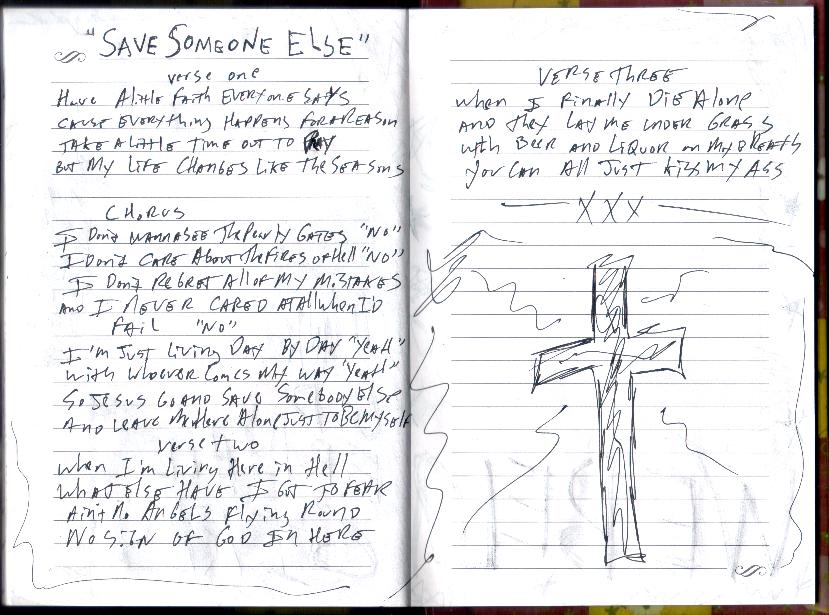 "SAVE SOMEONE ELSE"
verse one
HAVE A little FAITH EVERYONE SAYS
CAUSE EVERYthing HAPPENS FOR A REASON
TAKE A little TIME OUT TO PRAY
BUT MY LIFE CHANGES LIKE The SEASONS
CHORUS
I Don't WANNA SEE The Pearly GATES "NO"
I DON'T CARE About The FIRES of Hell "NO"
I Don't REGRET All OF MY MISTAKES
AND I NEVER CARED AT All when I'D
FAIL "NO"
I'm JUST Living DAY BY DAY "YeAH"
with WHOEVER COMES MY WAY "YeAH"
So JESUS GO AND SAVE SomeboDY ELSE
AND LEAVE Me Here Alone JUST TO BE MYSELF
verse two
when I'm Living Here in Hell
WHAT ELSE HAVE I GOT TO FEAR
Ain't No ANGELS Flying Round
No SIIN OF GOD IN HERE
VERSE THREE
when I FINAlly DIE Alone
AND They LAY ME UNDER GRASS
with BEER AND LIQUOR on MY BREATH
You CAN All JUST KISS MY ASS
XXX